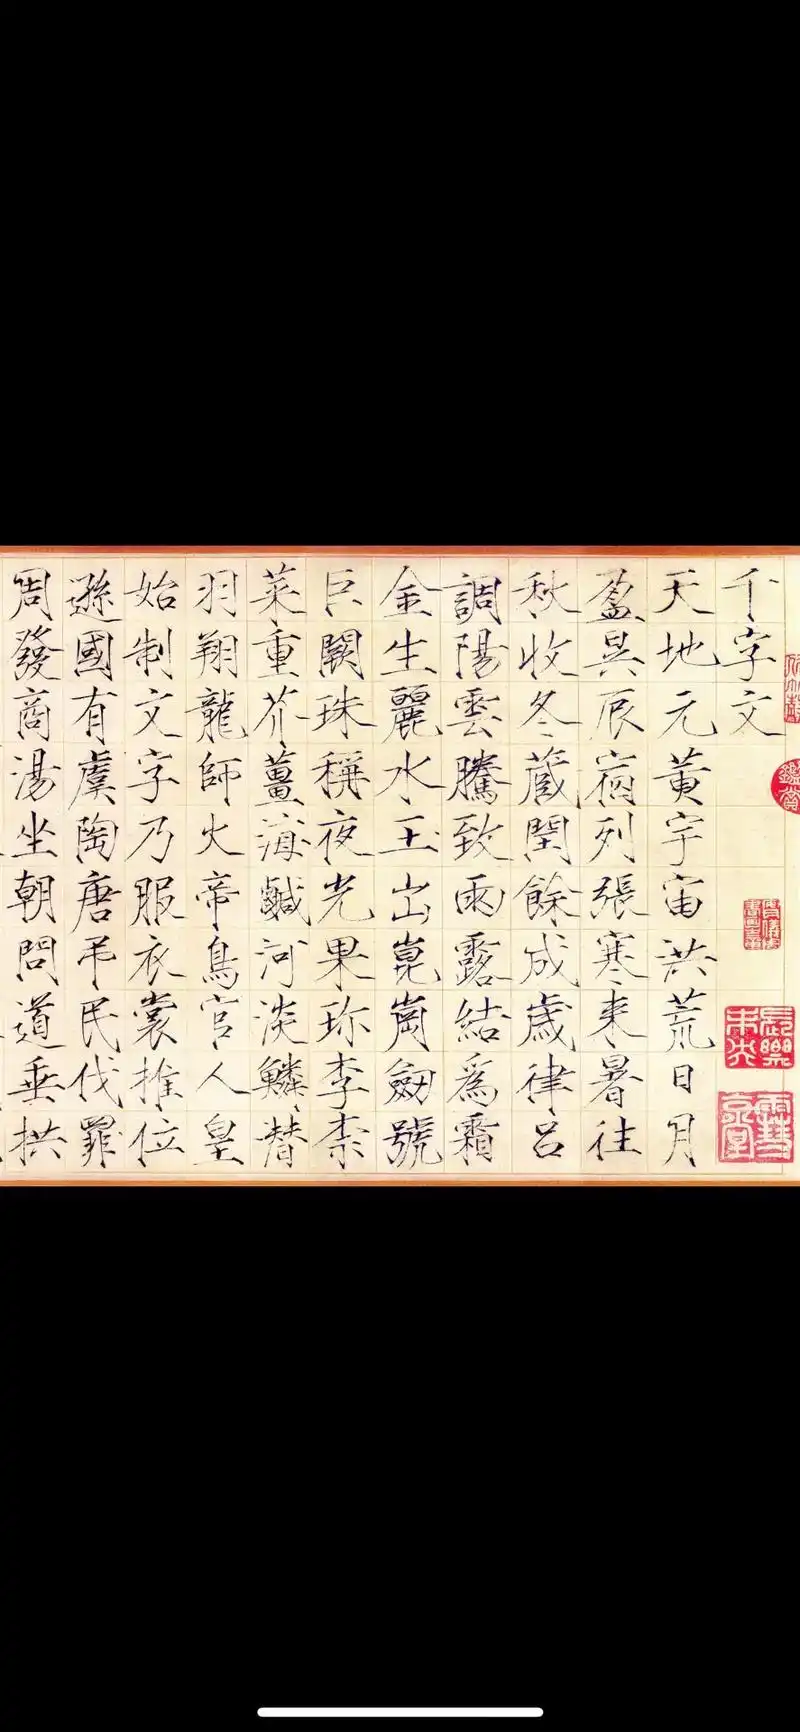 千字文
天地元黃宇宙洪荒日月
盈昃辰宿列張寒来暑往
秋收冬藏閏餘成歲律呂
調陽雲騰致雨露結爲霜
金生麗水玉出崑崗劒號
巨闕珠稱夜光果珎李柰
菜重芥薑海鹹河淡鱗潛
羽翔龍師火帝鳥官人皇
始制文字乃服衣裳推位
遜國有虞陶唐吊民伐罪
周發商湯坐朝問道垂拱
鑑賞
長樂未央